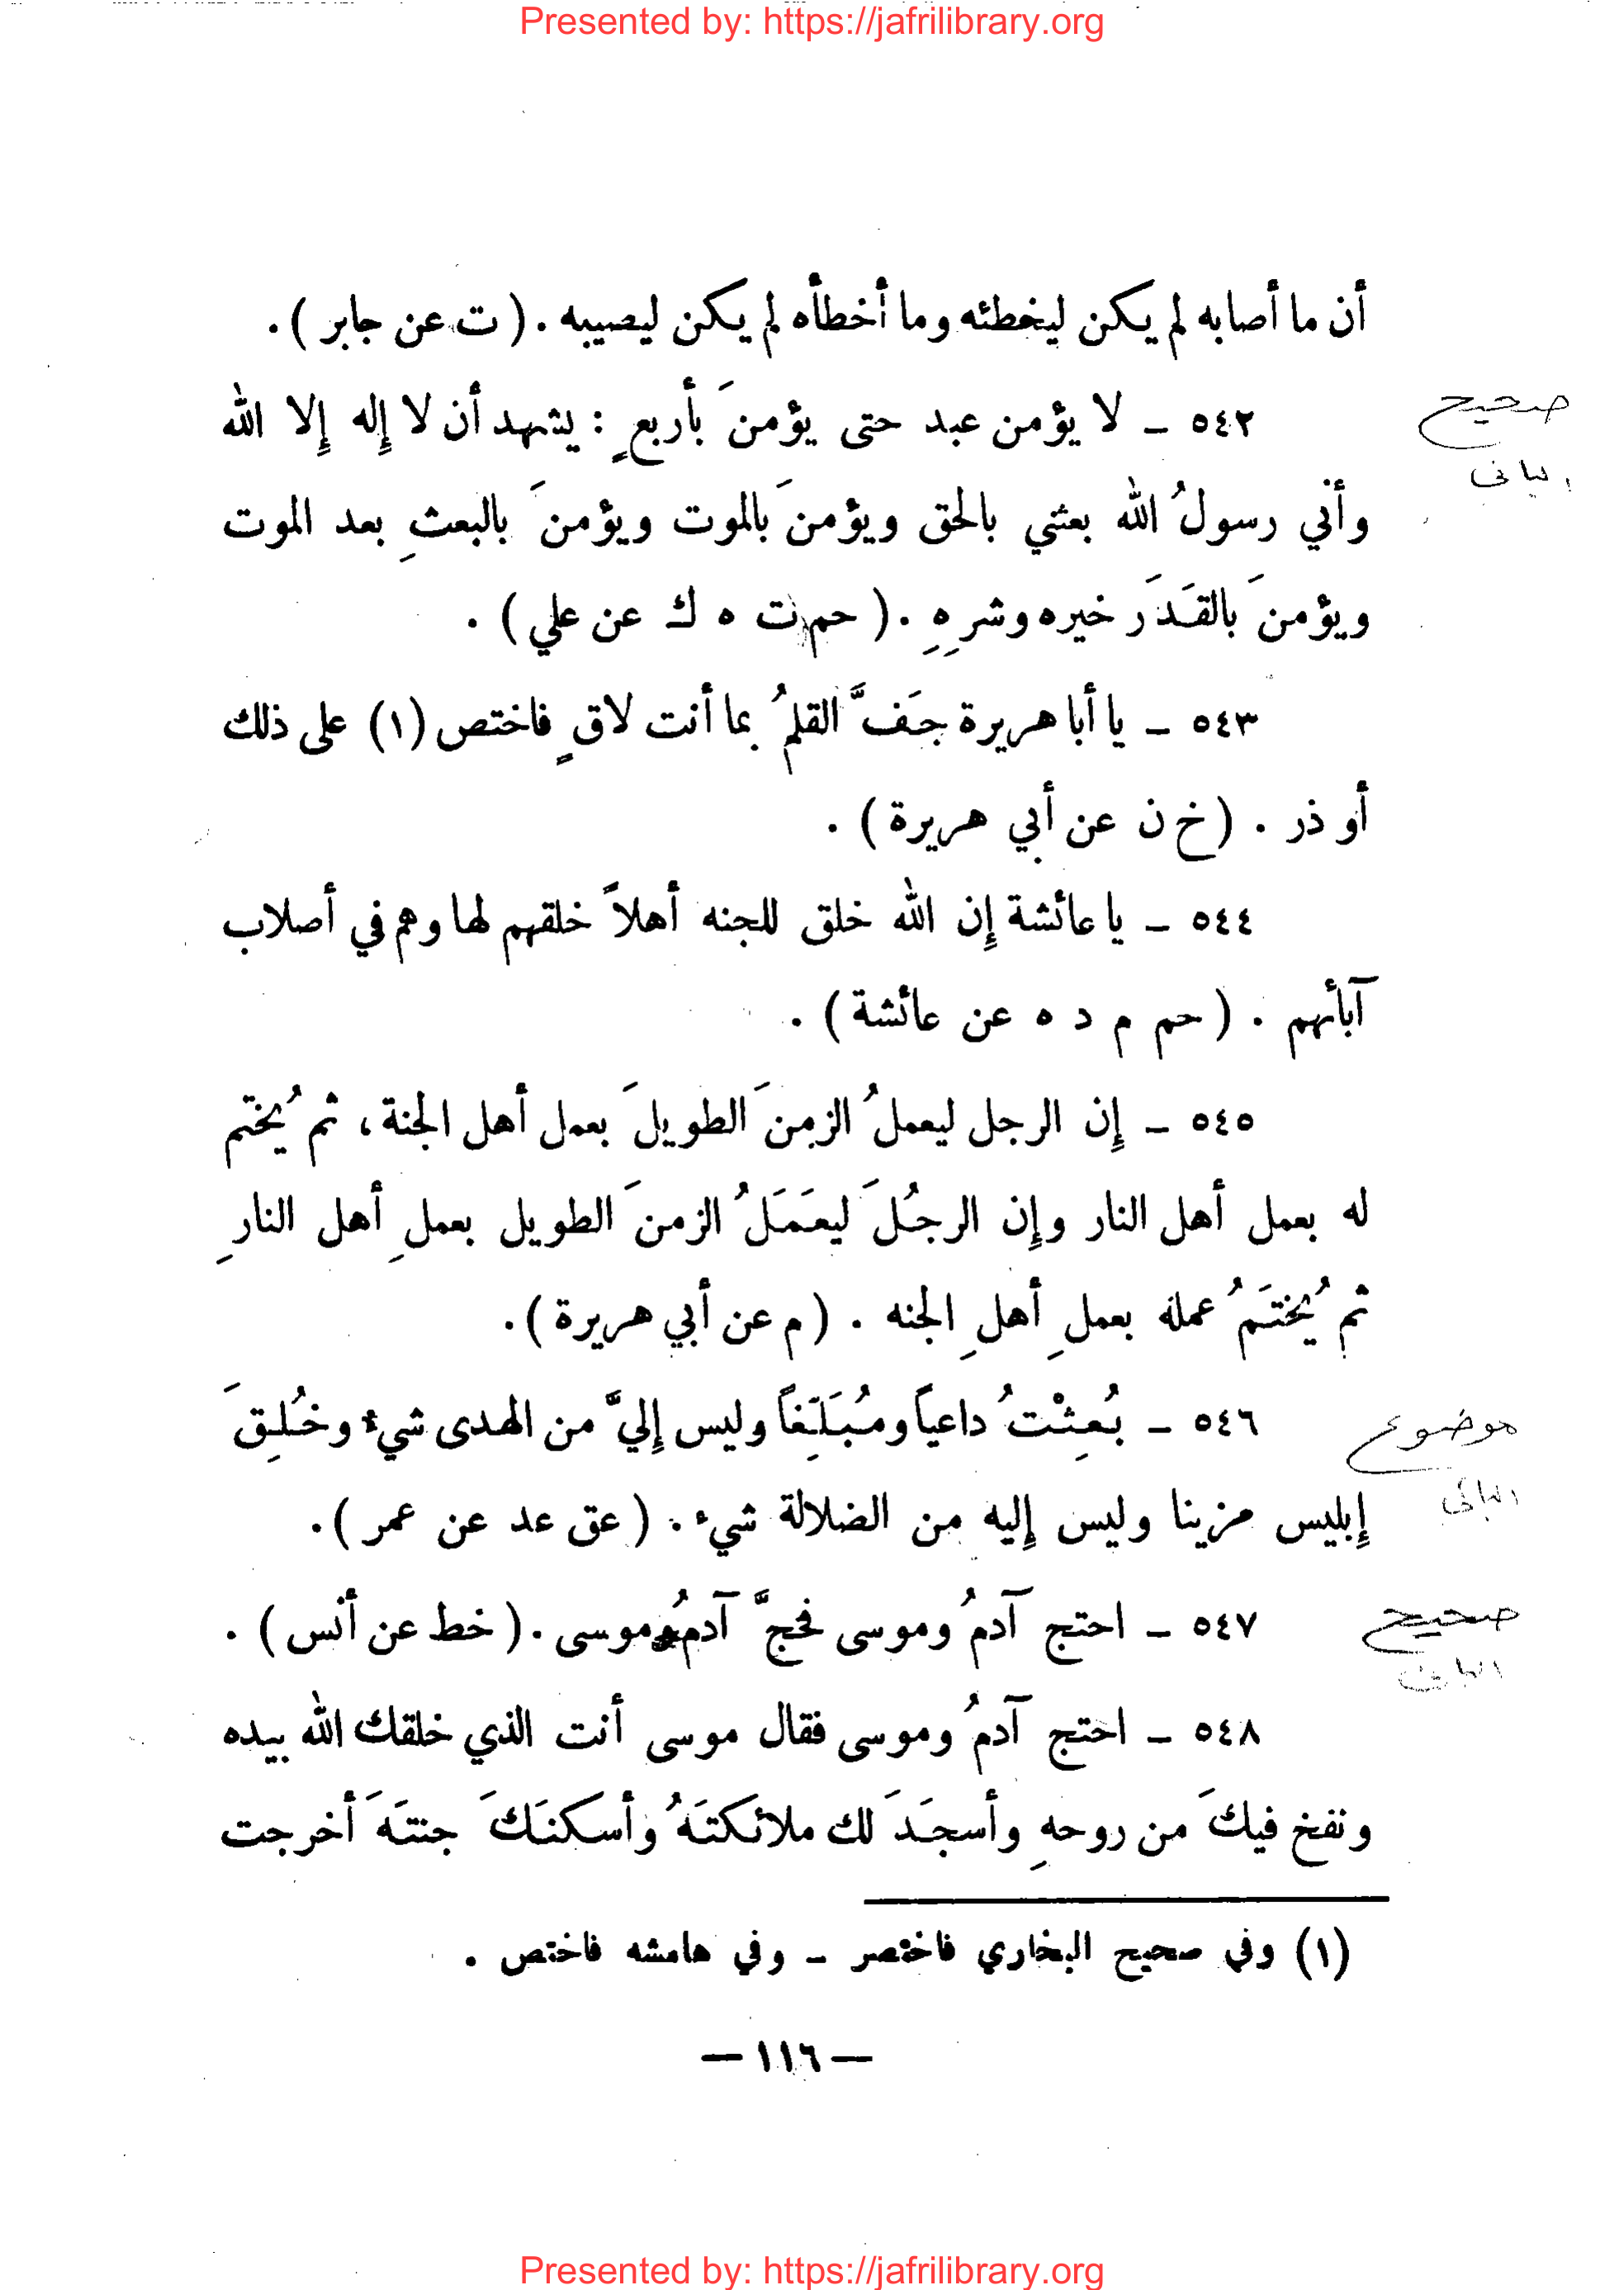 Presented by: https://jafrilibrary.org
أن ما أصابه لم يكن ليخطئه وما أخطأه لم يكن ليصيبه . ( ت عن جابر ) .
٥٤٢ – لا يؤمن عبد حتى يؤمنَ بأربعٍ : يشهد أن لا إله إلا الله
صحيح
البانى
وأني رسولُ الله بعثني بالحق ويؤمنَ بالموت ويؤمنَ بالبعثِ بعد الموت
ويؤمنَ بالقَدَر خيره وشرِهِ . ( حم ت ه ك عن علي ) .
٥٤٣ – يا أبا هريرة جَفَّ القلمُ بما أنت لاقٍ فاختص (١) على ذلك
أو ذر . ( خ ن عن أبي هريرة ) .
٥٤٤ – يا عائشة إن الله خلق للجنه أهلاً خلقهم لها وهم في أصلاب
آبائهم . ( حم م د ه عن عائشة ) .
٥٤٥ – إن الرجل ليعملُ الزمنَ الطويلَ بعمل أهل الجنة ، ثم يُختم
له بعمل أهل النار وإن الرجُلَ ليعَمَلُ الزمنَ الطويل بعملِ أهل النارِ
ثم يُختَمُ عمله بعملِ أهلِ الجنه . ( م عن أبي هريرة ) .
٥٤٦ – بُعِثْتُ داعياً ومُبَلِّغاً وليس إليَّ من الهدى شيء وخُلِقَ
موضوع
البانى
إبليس مزينا وليس إليه من الضلالة شيء . ( عق عد عن عمر ) .
٥٤٧ – احتج آدمُ وموسى فحجَّ آدمُ موسى . ( خط عن أنس ) .
صحيح
البانى
٥٤٨ – احتج آدمُ وموسى فقال موسى أنت الذي خلقك الله بيده
ونفخ فيكَ من روحهِ وأسجَدَ لك ملائكتَهُ وأسكنَكَ جنتَهَ أخرجت
(١) وفي صحيح البخاري فاختصر – وفي هامشه فاختص .
— ١١٦ —
Presented by: https://jafrilibrary.org